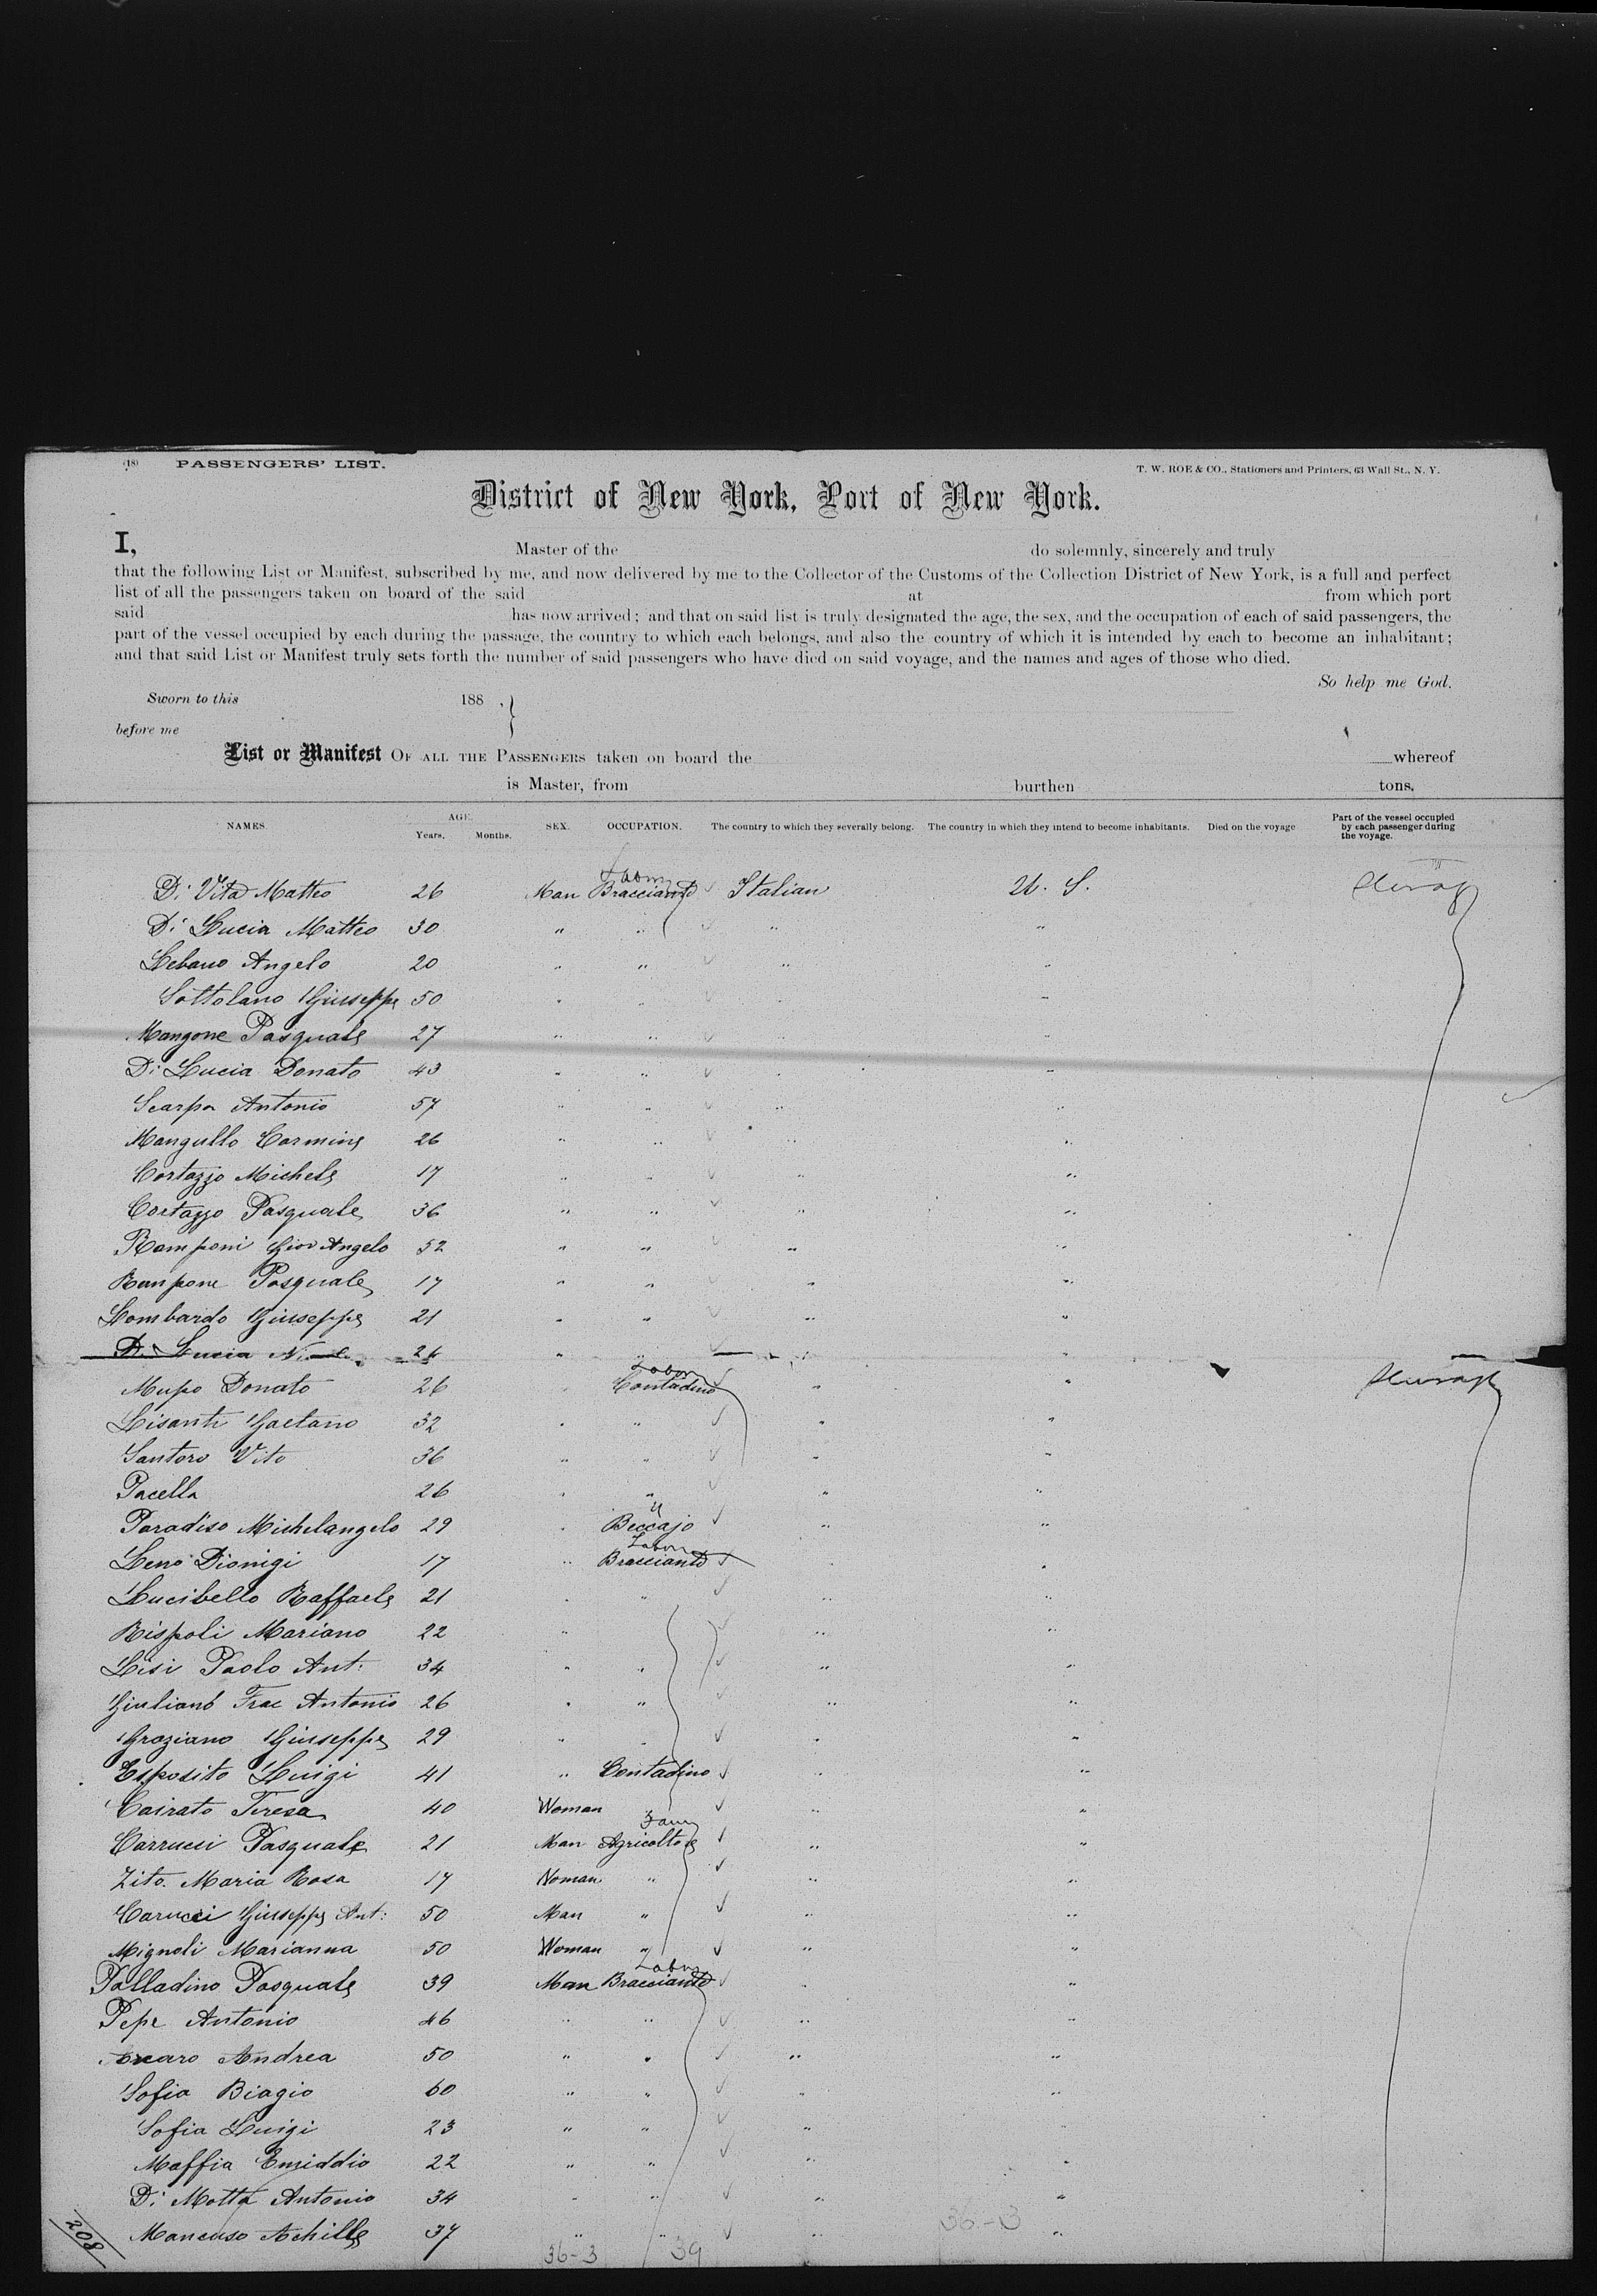 (18) PASSENGERS' LIST. T. W. ROE & CO., Stationers and Printers, 63 Wall St., N. Y.
District of New York, Port of New York.
I, Master of the do solemnly, sincerely and truly
that the following List or Manifest, subscribed by me, and now delivered by me to the Collector of the Customs of the Collection District of New York, is a full and perfect
list of all the passengers taken on board of the said at from which port
said has now arrived; and that on said list is truly designated the age, the sex, and the occupation of each of said passengers, the
part of the vessel occupied by each during the passage, the country to which each belongs, and also the country of which it is intended by each to become an inhabitant;
and that said List or Manifest truly sets forth the number of said passengers who have died on said voyage, and the names and ages of those who died.
So help me God.
Sworn to this 188 ,
before me
List or Manifest OF ALL THE PASSENGERS taken on board the whereof
is Master, from burthen tons.
NAMES AGE. Years. Months. SEX. OCCUPATION. The country to which they severally belong. The country in which they intend to become inhabitants. Died on the voyage Part of the vessel occupied by each passenger during the voyage.
Labor
Di Vita Matteo 26 Man Bracciante Italian U. S.
Di Lucia Matteo 30 " " " "
Lebano Angelo 20 " " " "
Sottolano Giuseppe 50 " " "
Mangone Pasquale 27 " " " "
Di Lucia Donato 43 " " " "
Scarpa Antonio 57 " " " "
Mangullo Carmine 26 " " " "
Cortazzo Michele 17 " " " "
Cortazzo Pasquale 36 " " " "
Ramponi Giov Angelo 52 " " " "
Rampone Pasquale 17 " " " "
Lombardo Giuseppe 21 " " " "
Di Lucia 26 " "
Labor
Mupo Donato 26 " Contadino " "
Lisanti Gaetano 32 " " " "
Santoro Vito 36 " " " "
Pacella 26 " " " "
Paradiso Michelangelo 29 " Beccajo " "
Labor
Leno Dionigi 17 " Bracciante " "
Lucibello Raffaele 21 " " " "
Rispoli Mariano 22 " " "
Lisi Paolo Ant: 34 " " " "
Giuliano Frac Antonio 26 " " " "
Graziano Giuseppe 29 " " " "
Esposito Luigi 41 " Contadino " "
Cairato Teresa 40 Woman " "
Farm
Carrucci Pasquale 21 Man Agricoltore " "
Zito Maria Rosa 17 Woman " " "
Carucci Giuseppe Ant: 50 Man " " "
Mignoli Marianna 50 Woman " " "
Labor
Palladino Pasquale 39 Man Bracciante " "
Pepe Antonio 46 " " " "
Andrea 50 " " " "
Sofia Biagio 60 " " " "
Sofia Luigi 23 " " " "
Maffia Emiddio 22 " " " "
Di Motta Antonio 34 " " " "
Mancuso Achille 37 " " " "
208 36-3 39 36-3